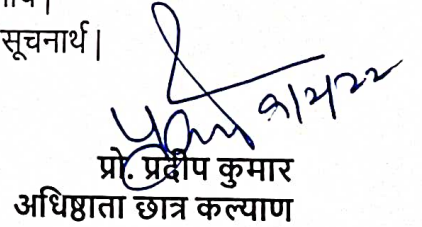 सूचनार्थ|
प्रो. प्रदीप कुमार
अधिष्ठाता छात्र कल्याण